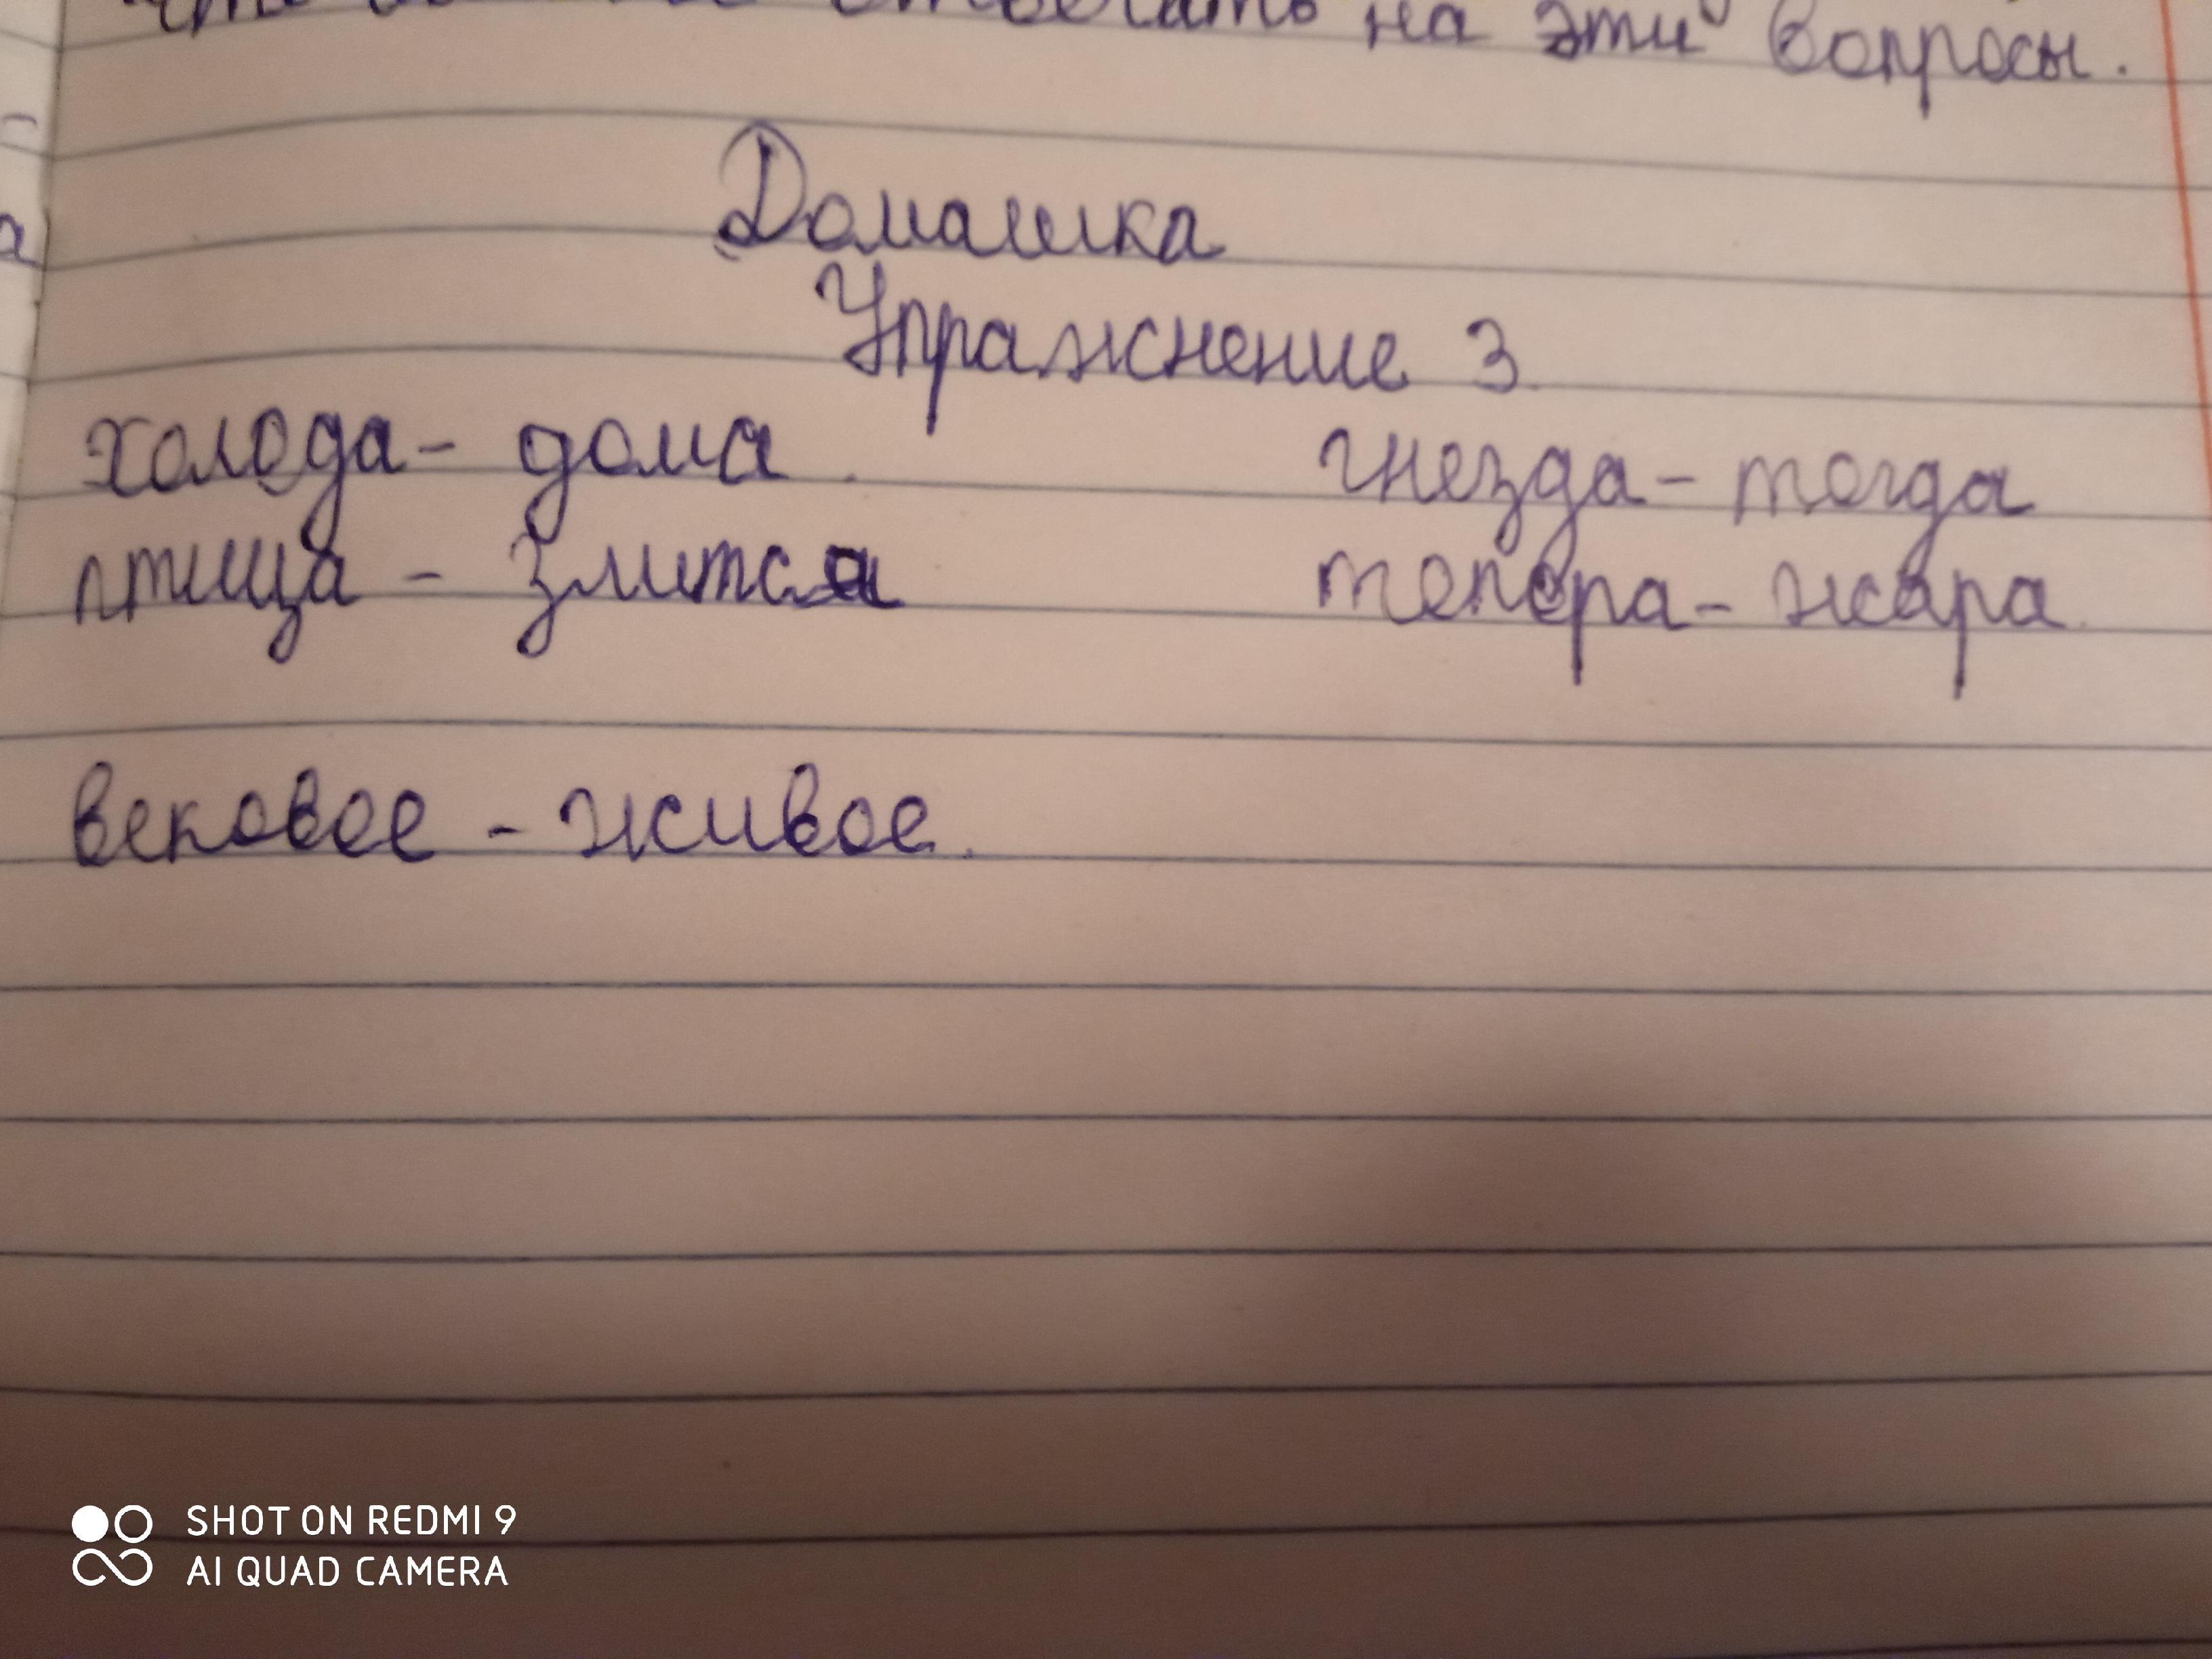 на эти вопросы.
Домашка
Упражнение 3
холода - дома гнезда - тогда
птица - злится топора - жара
вековое - живое.
SHOT ON REDMI 9
AI QUAD CAMERA